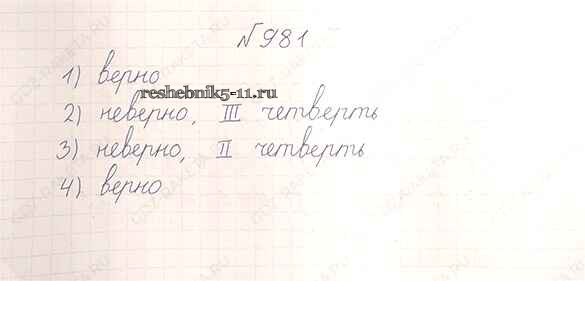 №981
1) верно
reshebnik5-11.ru
2) неверно, III четверть
3) неверно, II четверть
4) верно